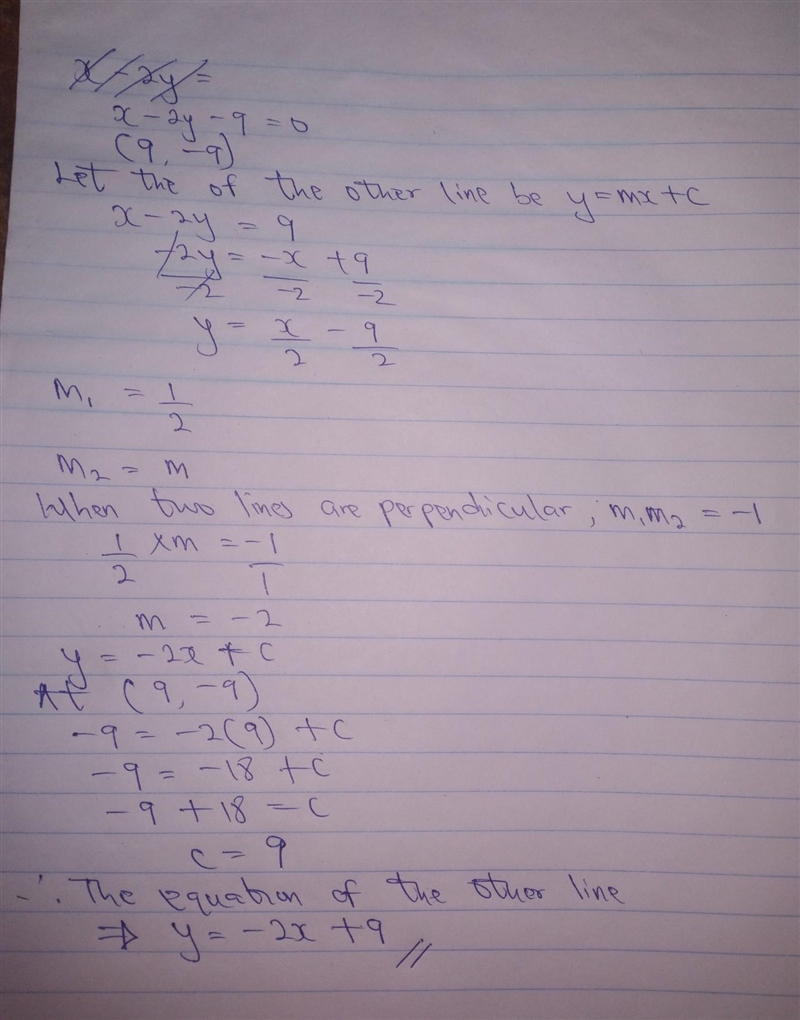 x - 2y =
x - 2y - 9 = 0
(9, -9)
Let the of the other line be y = mx + c
x - 2y = 9
-2y/-2 = -x/-2 + 9/-2
y = x/2 - 9/2
m₁ = 1/2
m₂ = m
When two lines are perpendicular, m₁m₂ = -1
1/2 × m = -1/1
m = -2
y = -2x + c
At (9, -9)
-9 = -2(9) + c
-9 = -18 + c
-9 + 18 = c
c = 9
∴ The equation of the other line
⇒ y = -2x + 9 //